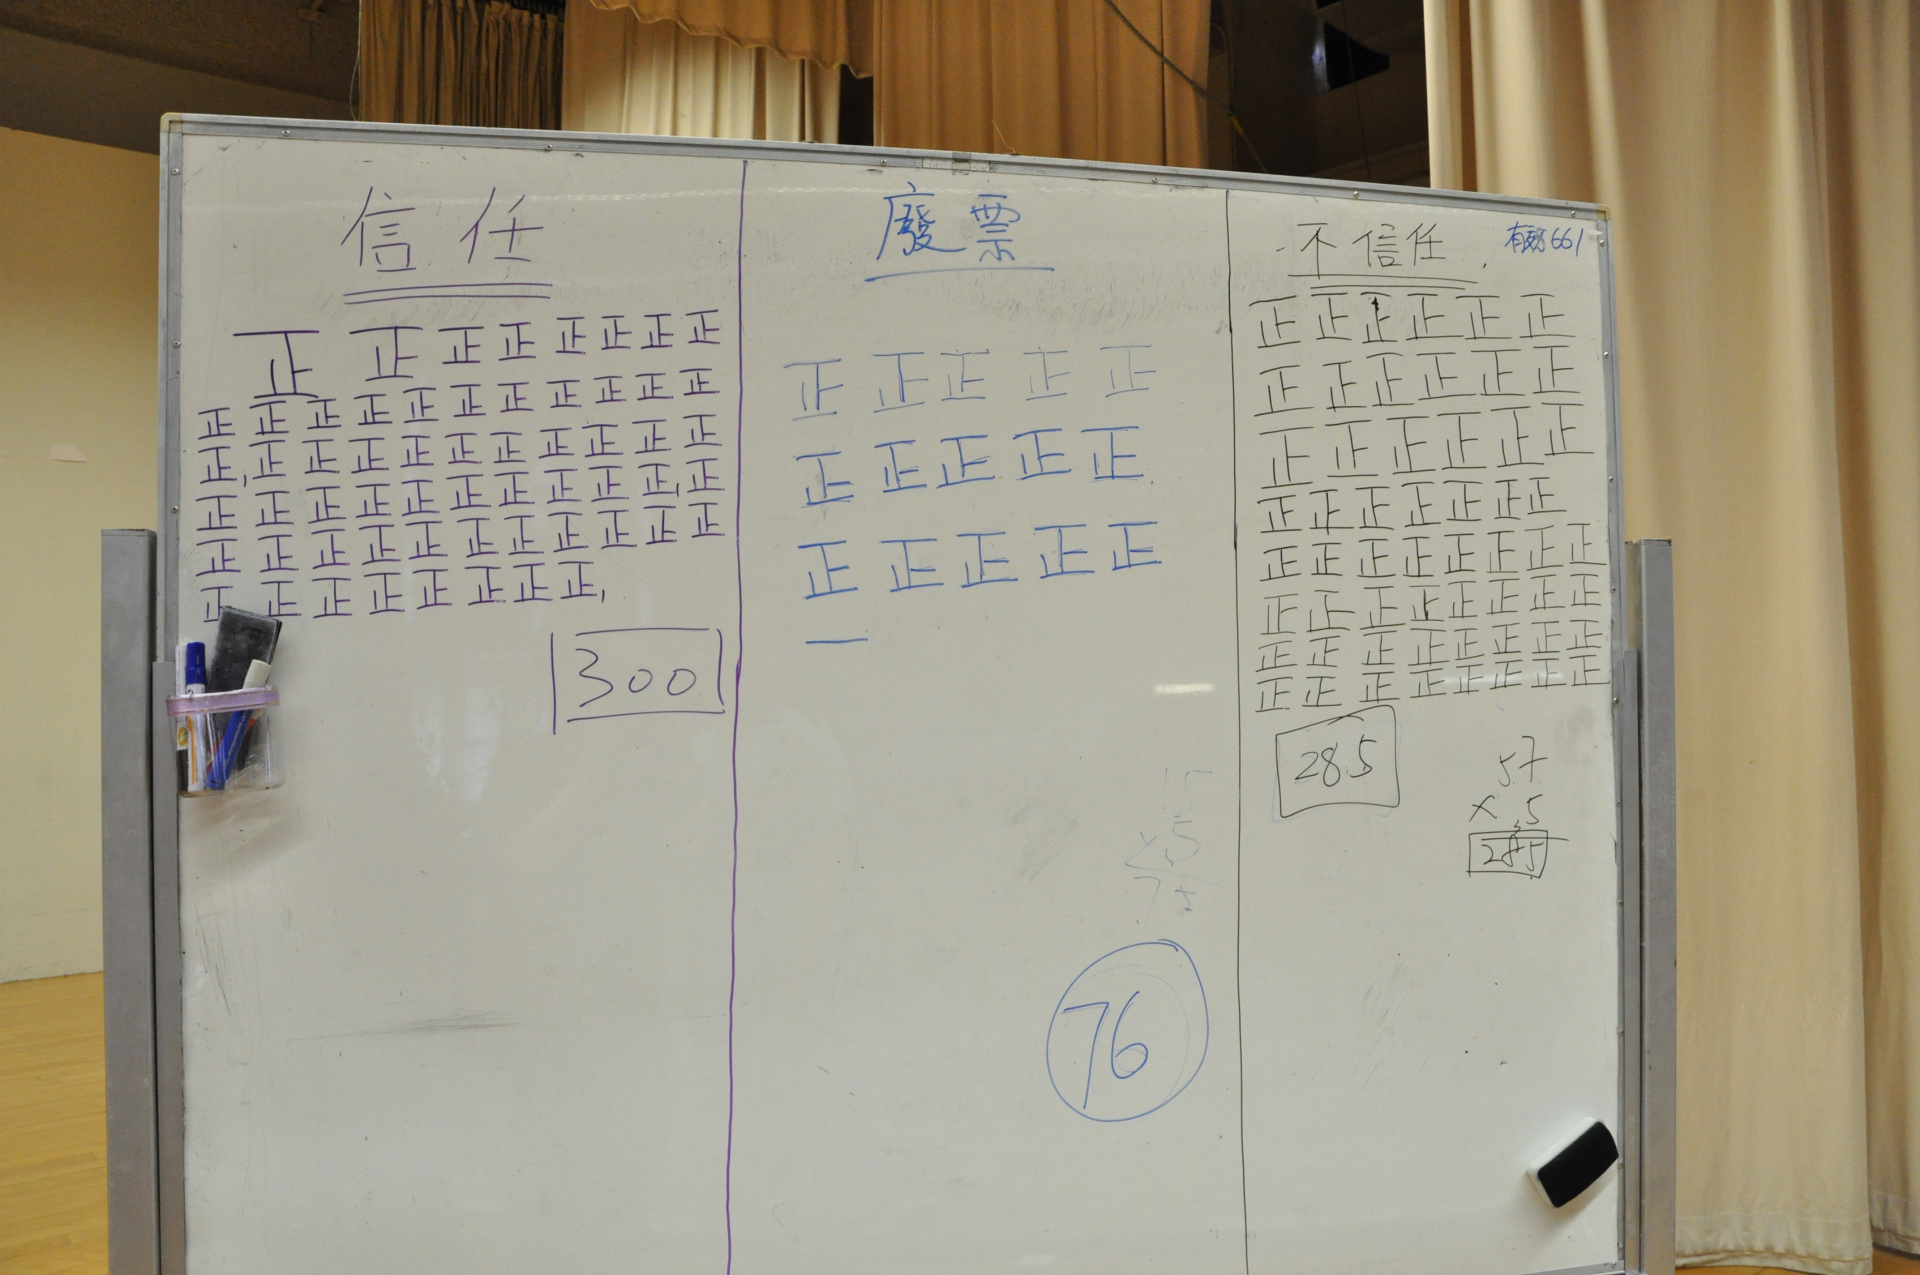 信任
正正正正正正正正
正正正正正正正正正正正
正正正正正正正正正正正
正正正正正正正正正正正
正正正正正正正正正正正
正正正正正正正正
300
廢票
正正正正正
正正正正正
正正正正正
一
76
不信任
有效661
正正正正正正
正正正正正正
正正正正正正
正正正正正正正
正正正正正正正正
正正正正正正正正
正正正正正正正正
正正正正正正正正
285
57
× 5
285